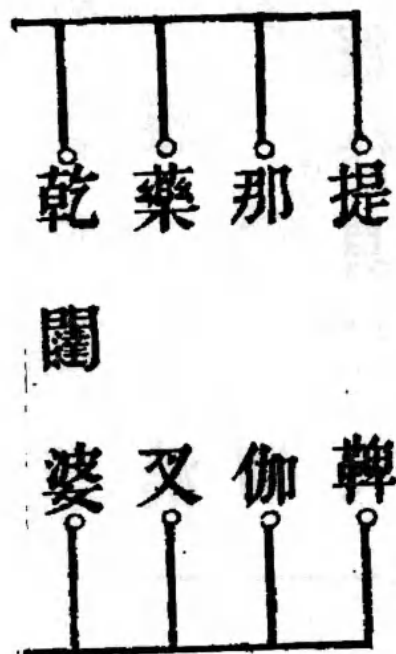 提鞞
那伽
藥叉
乾闥婆